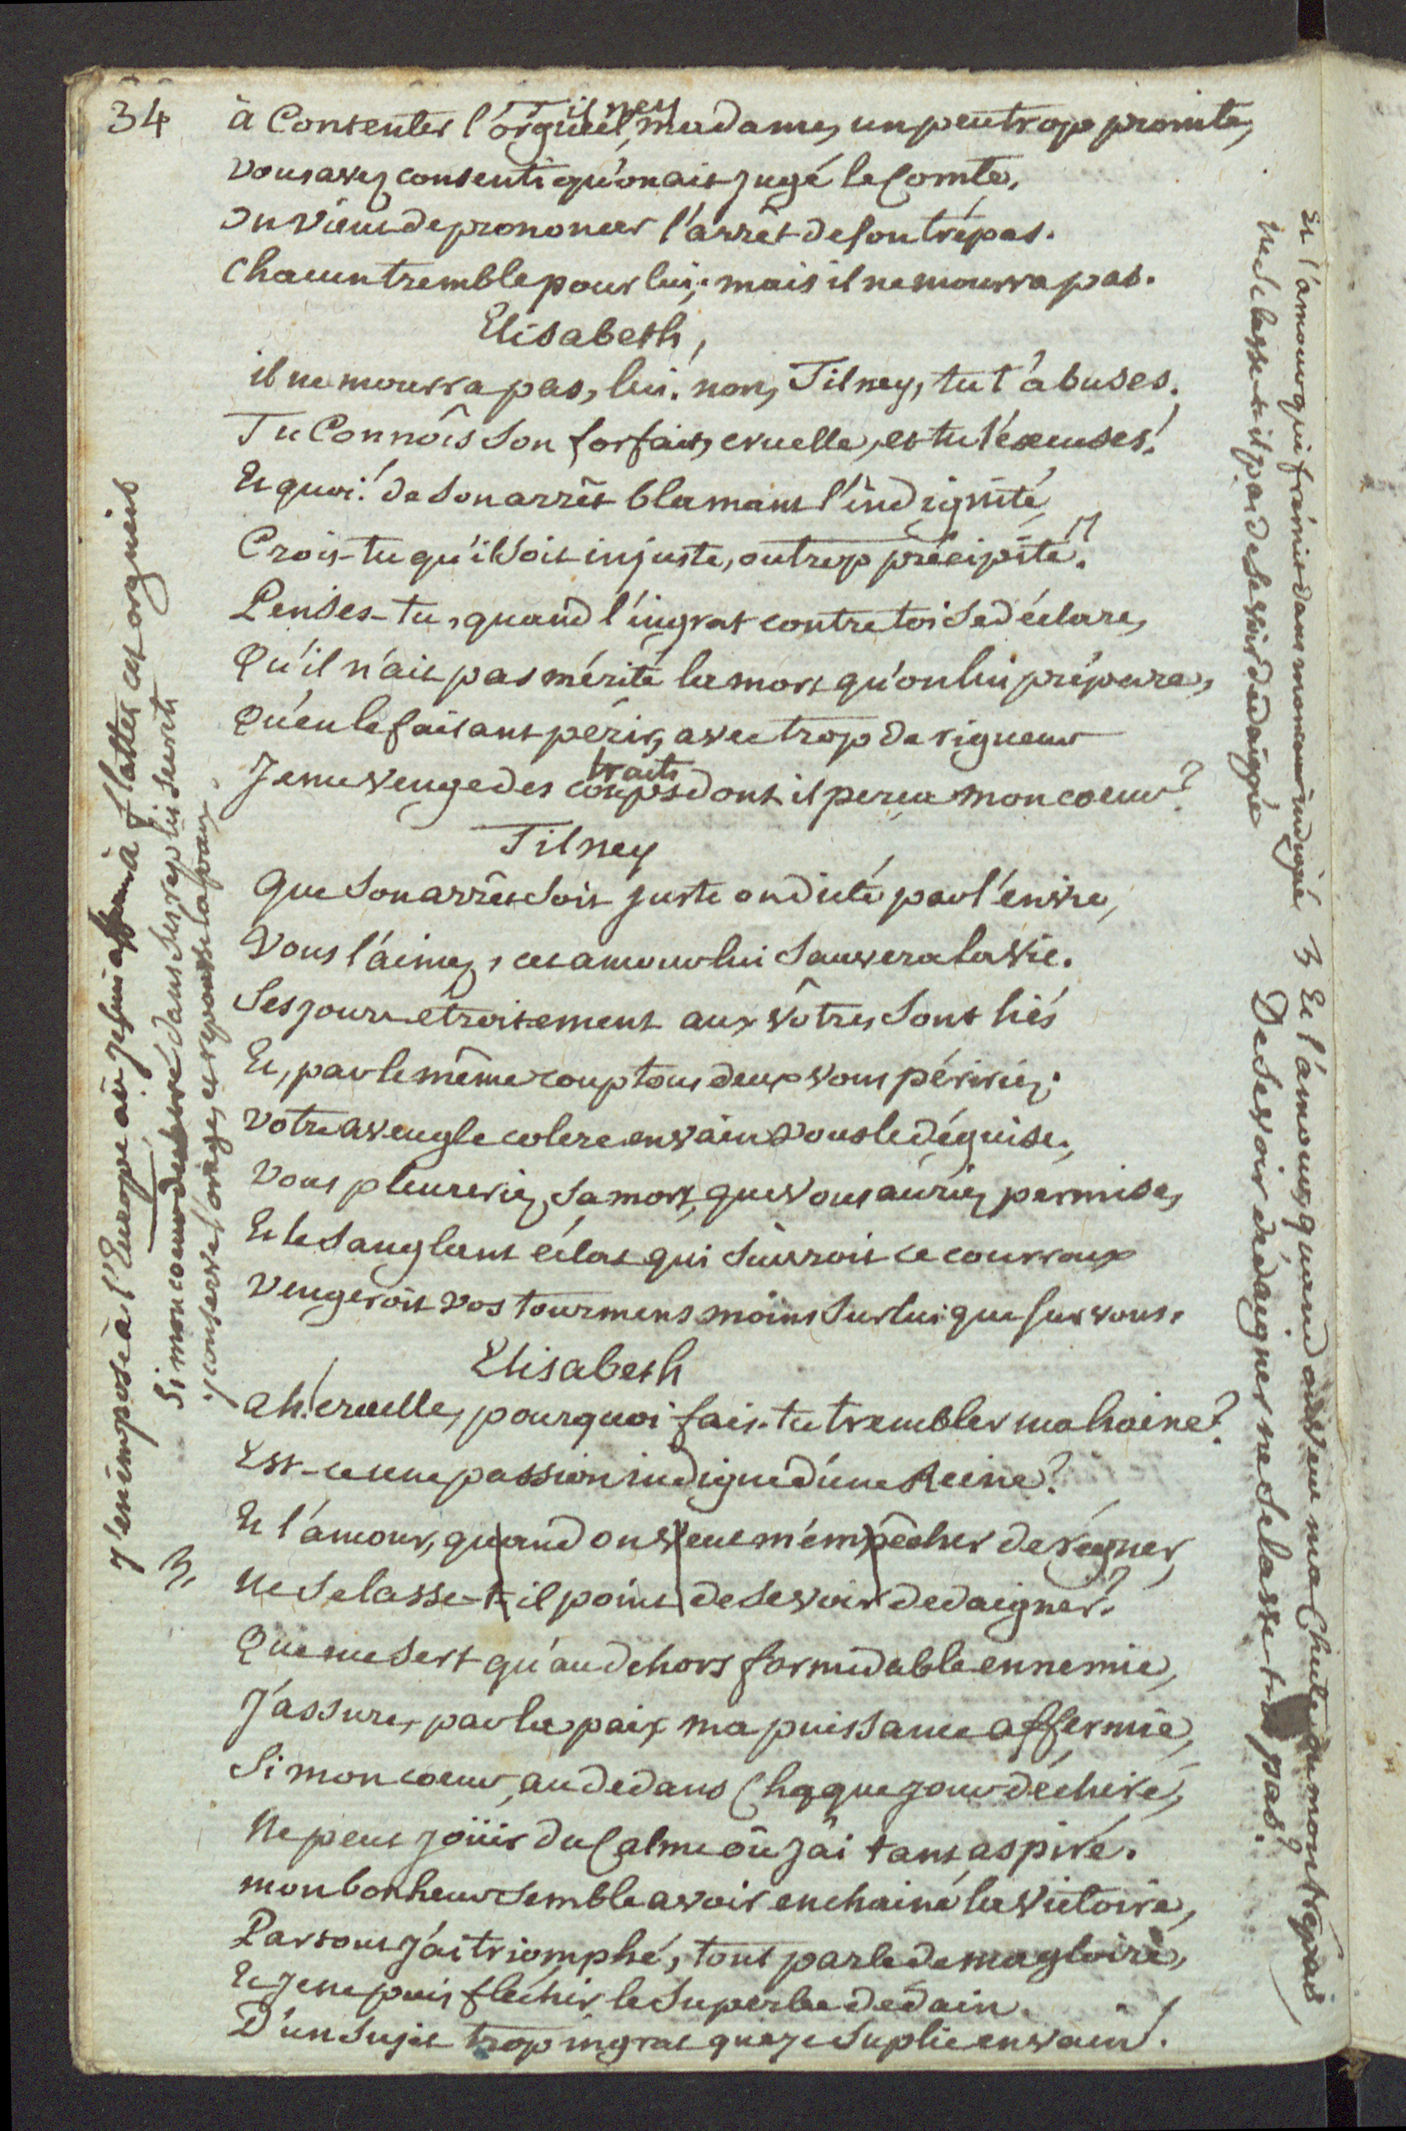 34
Tilney
à Contenter l'orgueil, madame, un peu trop promte,
vous avez consenti qu'on ait jugé le Comte,
on vient de prononcer l'arrêt de son trépas.
chacun tremble pour lui; mais il ne mourra pas.
Elisabeth,
il ne mourra pas, lui! non, Tilney, tu t'abuses.
Tu Connois son forfait, cruelle, et tu l'excuses!
Et quoi! de son arrêt blamant l'indignité,
Crois-tu qu'il soit injuste, ou trop précipité?
Penses-tu, quand l'ingrat contre toi se déclare,
Qu'il n'ait pas mérité la mort qu'on lui prépare,
Qu'en le faisant périr, avec trop de rigueur
Je me venge des coups dont il perça mon coeur?
traits
Tilney
Que son arrêt soit juste ou dicté par l'envie,
Vous l'aimez, cet amour lui sauvera la vie.
Ses jours étroitement aux vôtres sont liés
Et, par le même coup tous deux vous péririez;
Votre aveugle colere en vain vous le déguise,
Vous pleureriez sa mort, que vous auriez permise,
Et le sanglant éclat qui suivroit ce courroux
Vengeroit vos tourmens moins sur lui que sur vous.
Elisabeth
ah! cruelle, pourquoi fais-tu trembler ma haine?
Est-ce une passion indigne d'une Reine?
Et l'amour, quand on veut m'empêcher de régner,
Ne se lasse-t-il point de se voir dedaigner?
Que me sert qu'au dehors formidable ennemie,
J'assure, par la paix ma puissance affermie,
Si mon coeur, au dedans Chaque jour déchiré,
Ne peut joüir du Calme où j'ai tant aspiré.
mon bonheur semble avoir enchainé la Victoire,
Partout j'ai triomphé, tout parle de ma gloire,
Et je ne puis fléchir le superbe dedain
D'un sujet trop ingrat que je suplie en vain!
j'en impose à l'Europe où je fais
à flatter cet orgueil
Si mon coeur dans ses replis secrets
y conserve l'orage, en répandant la paix
3.
Et l'amour qui frémit dans mon coeur indigné
Ne se lasse-t-il pas de se voir dédaigné
3 Et l'amour, quand on veut ma Chute ou mon trépas
De se voir dédaigner ne se lasse-t-il pas?